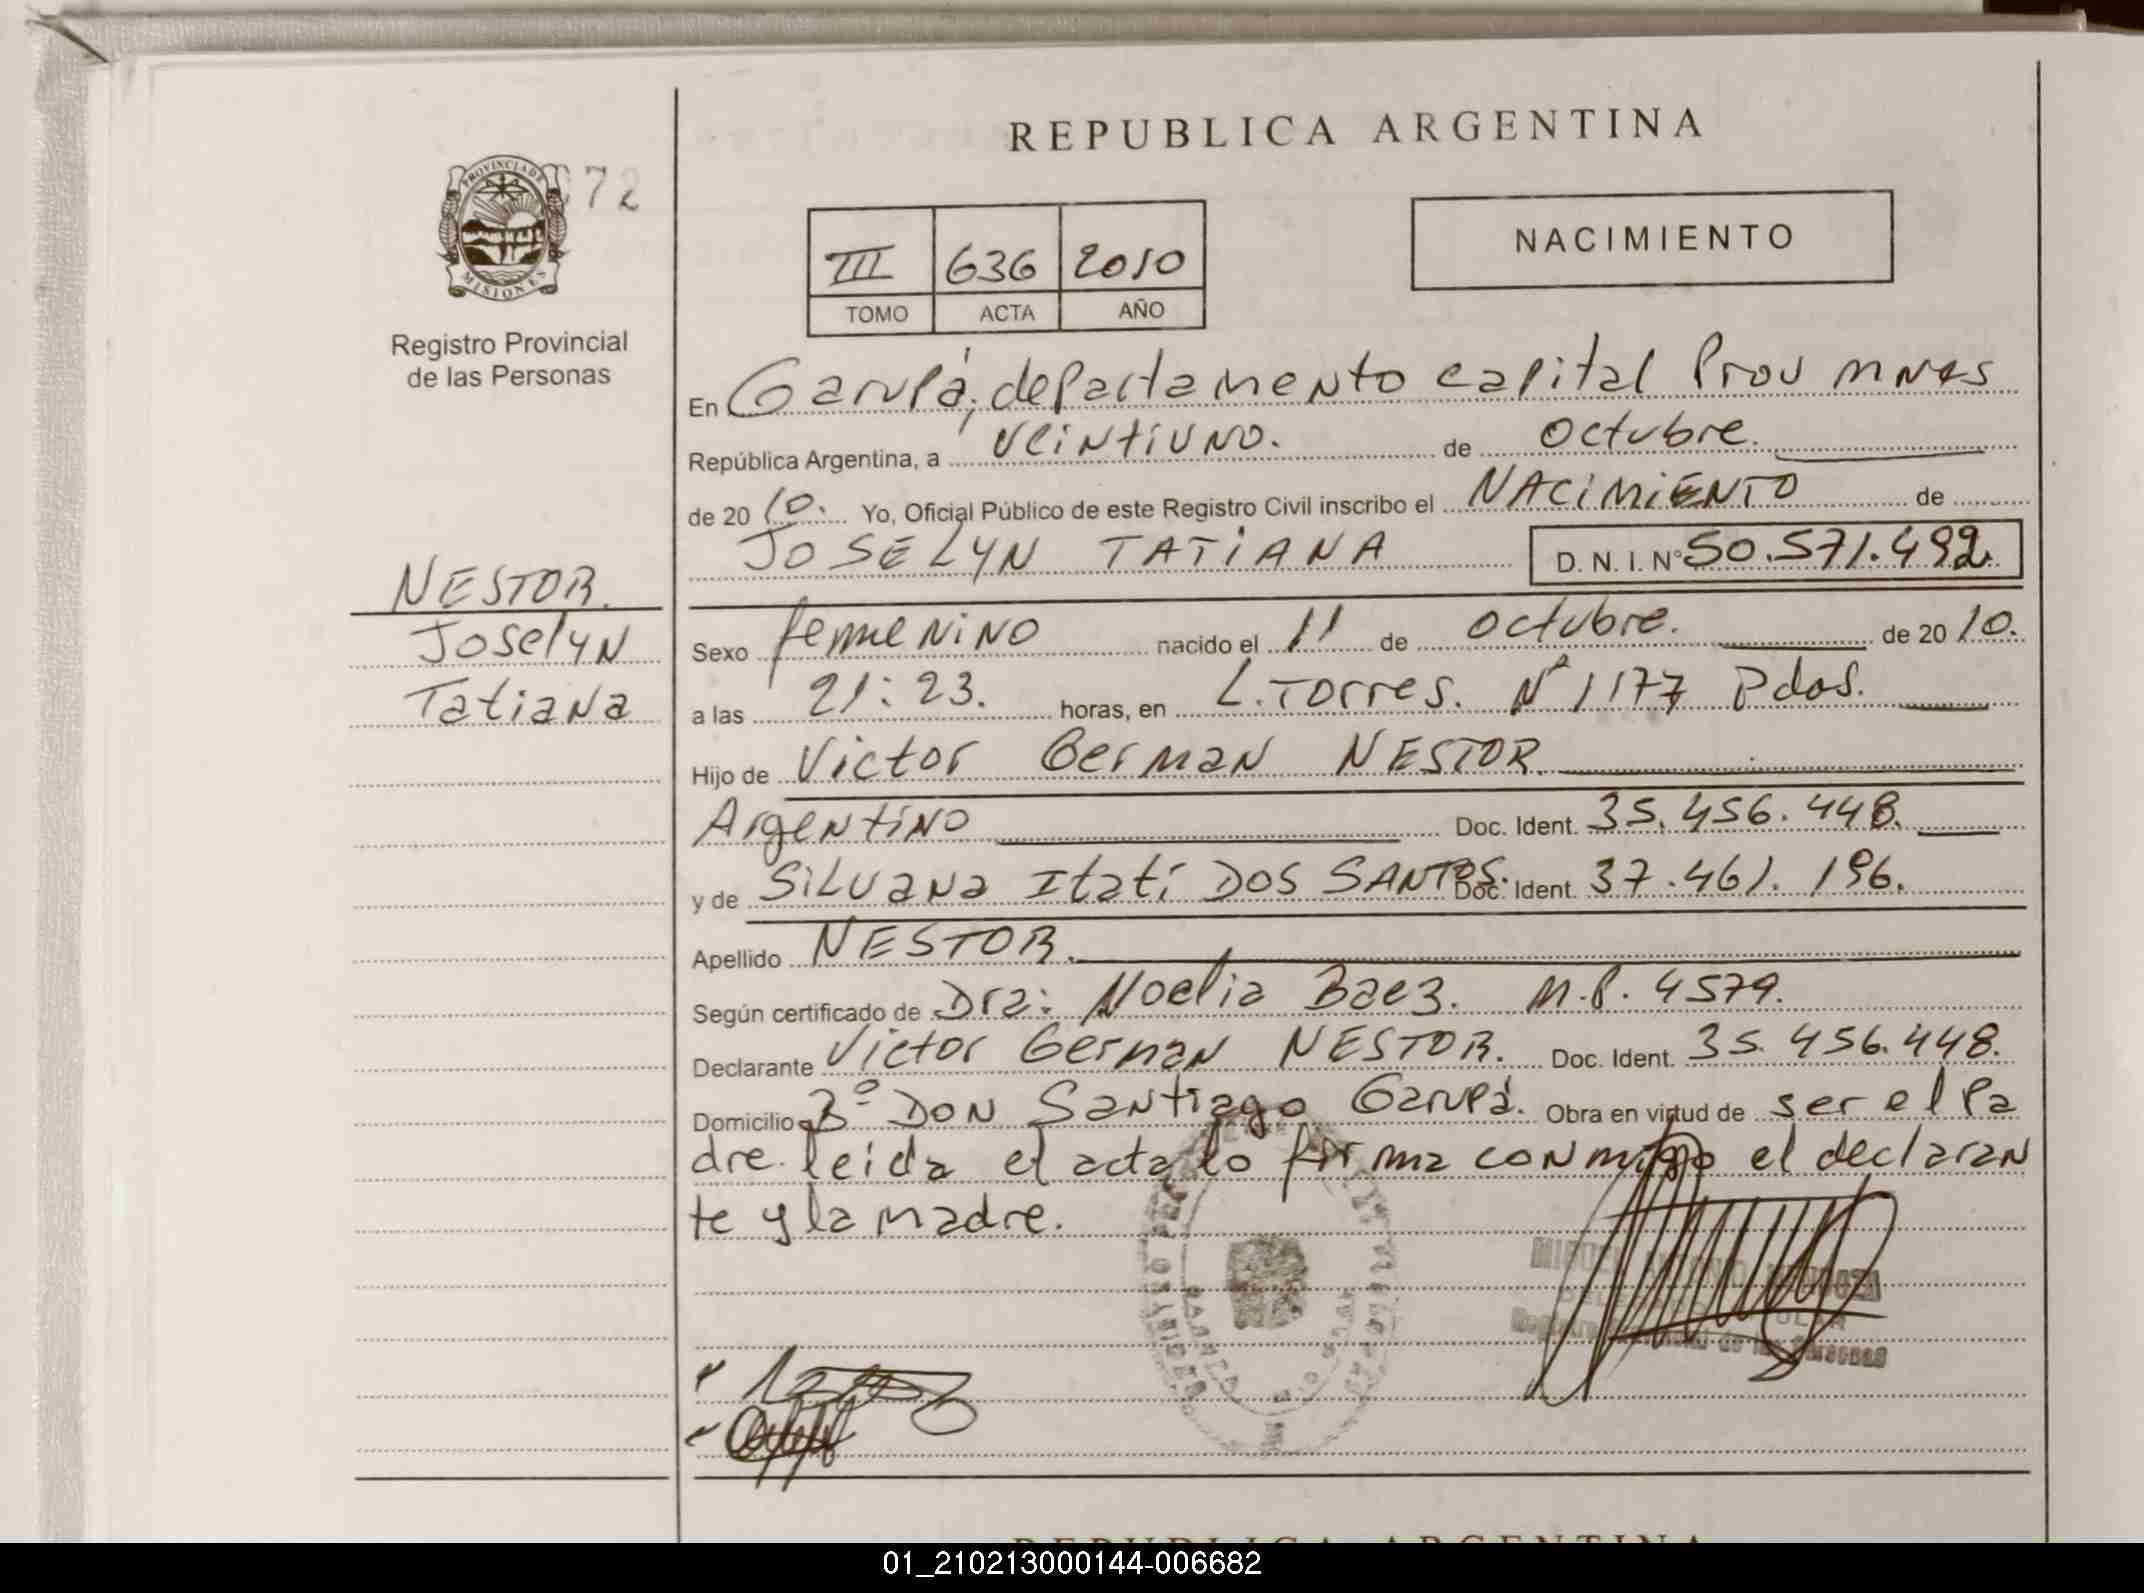 REPUBLICA ARGENTINA
PROVINCIA DE
MISIONES
72
Registro Provincial
de las Personas
III 636 2010
TOMO ACTA AÑO
NACIMIENTO
En Garupá, departamento capital Prov Mnes
República Argentina, a veintiuno. de octubre.
de 20 10. Yo, Oficial Público de este Registro Civil inscribo el NACIMIENTO de
JOSELYN TATIANA D. N. I. Nº 50.571.492.
NESTOR.
Joselyn
Tatiana
Sexo femenino nacido el 11 de octubre. de 20 10.
a las 21:23. horas, en L. Torres. Nº 1177 Pdas.
Hijo de Victor German NESTOR.
Argentino Doc. Ident. 35.456.448.
y de Silvana Itatí DOS SANTOS. Doc. Ident. 37.461.196.
Apellido NESTOR.
Según certificado de Dra: Noelia Baez. M.P. 4579.
Declarante Victor German NESTOR. Doc. Ident. 35.456.448.
Domicilio Bº DON Santiago Garupá. Obra en virtud de ser el pa
dre. leida el acta lo firma conmigo el declaran
te y la madre.
REPUBLICA ARGENTINA
01_210213000144-006682